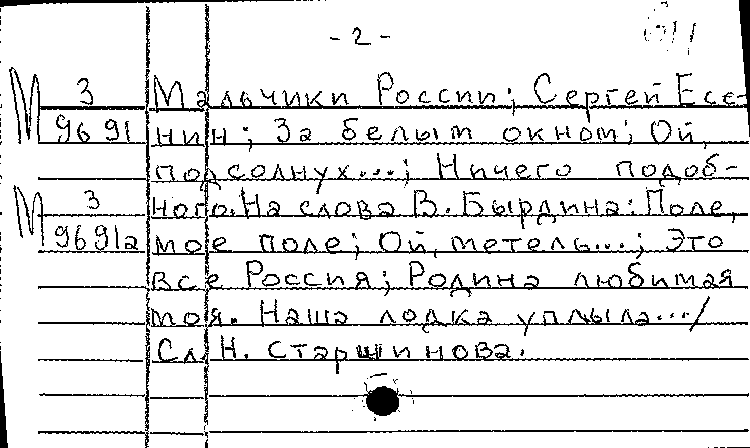 - 2 -
М 3 Мальчики России; Сергей Есе-
9691 нин; За белым окном; Ой,
подсолнух...; Ничего подоб-
М 3 ного. На слова В. Бырдина: Поле,
9691а мое поле; Ой, метель...; Это
все Россия; Родина любимая
моя. Наша лодка уплыла.../
Сл. Н. Старшинова.